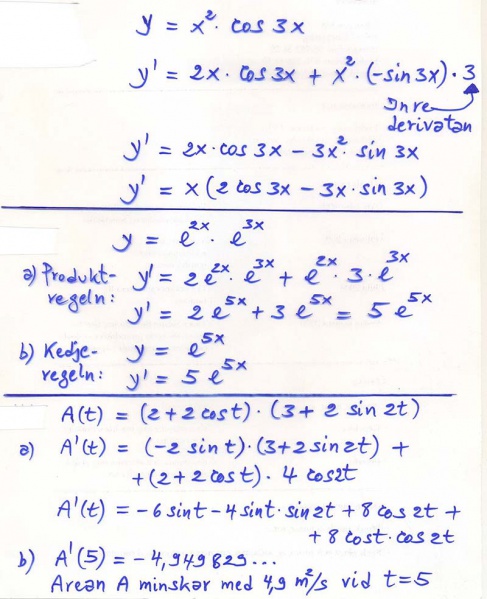 y = x² · cos 3x
y' = 2x · cos 3x + x² · (-sin 3x) · 3
Inre
derivatan
y' = 2x · cos 3x - 3x² · sin 3x
y' = x (2 cos 3x - 3x · sin 3x)
y = e²ˣ · e³ˣ
a) Produkt- y' = 2 e²ˣ · e³ˣ + e²ˣ · 3 · e³ˣ
regeln: y' = 2 e⁵ˣ + 3 e⁵ˣ = 5 e⁵ˣ
b) Kedje- y = e⁵ˣ
regeln: y' = 5 e⁵ˣ
A(t) = (2 + 2 cos t) · (3 + 2 sin 2t)
a) A'(t) = (-2 sin t) · (3 + 2 sin 2t) +
+ (2 + 2 cos t) · 4 cos 2t
A'(t) = -6 sin t - 4 sin t · sin 2t + 8 cos 2t +
+ 8 cos t · cos 2t
b) A'(5) = -4,949829...
Arean A minskar med 4,9 m²/s vid t = 5